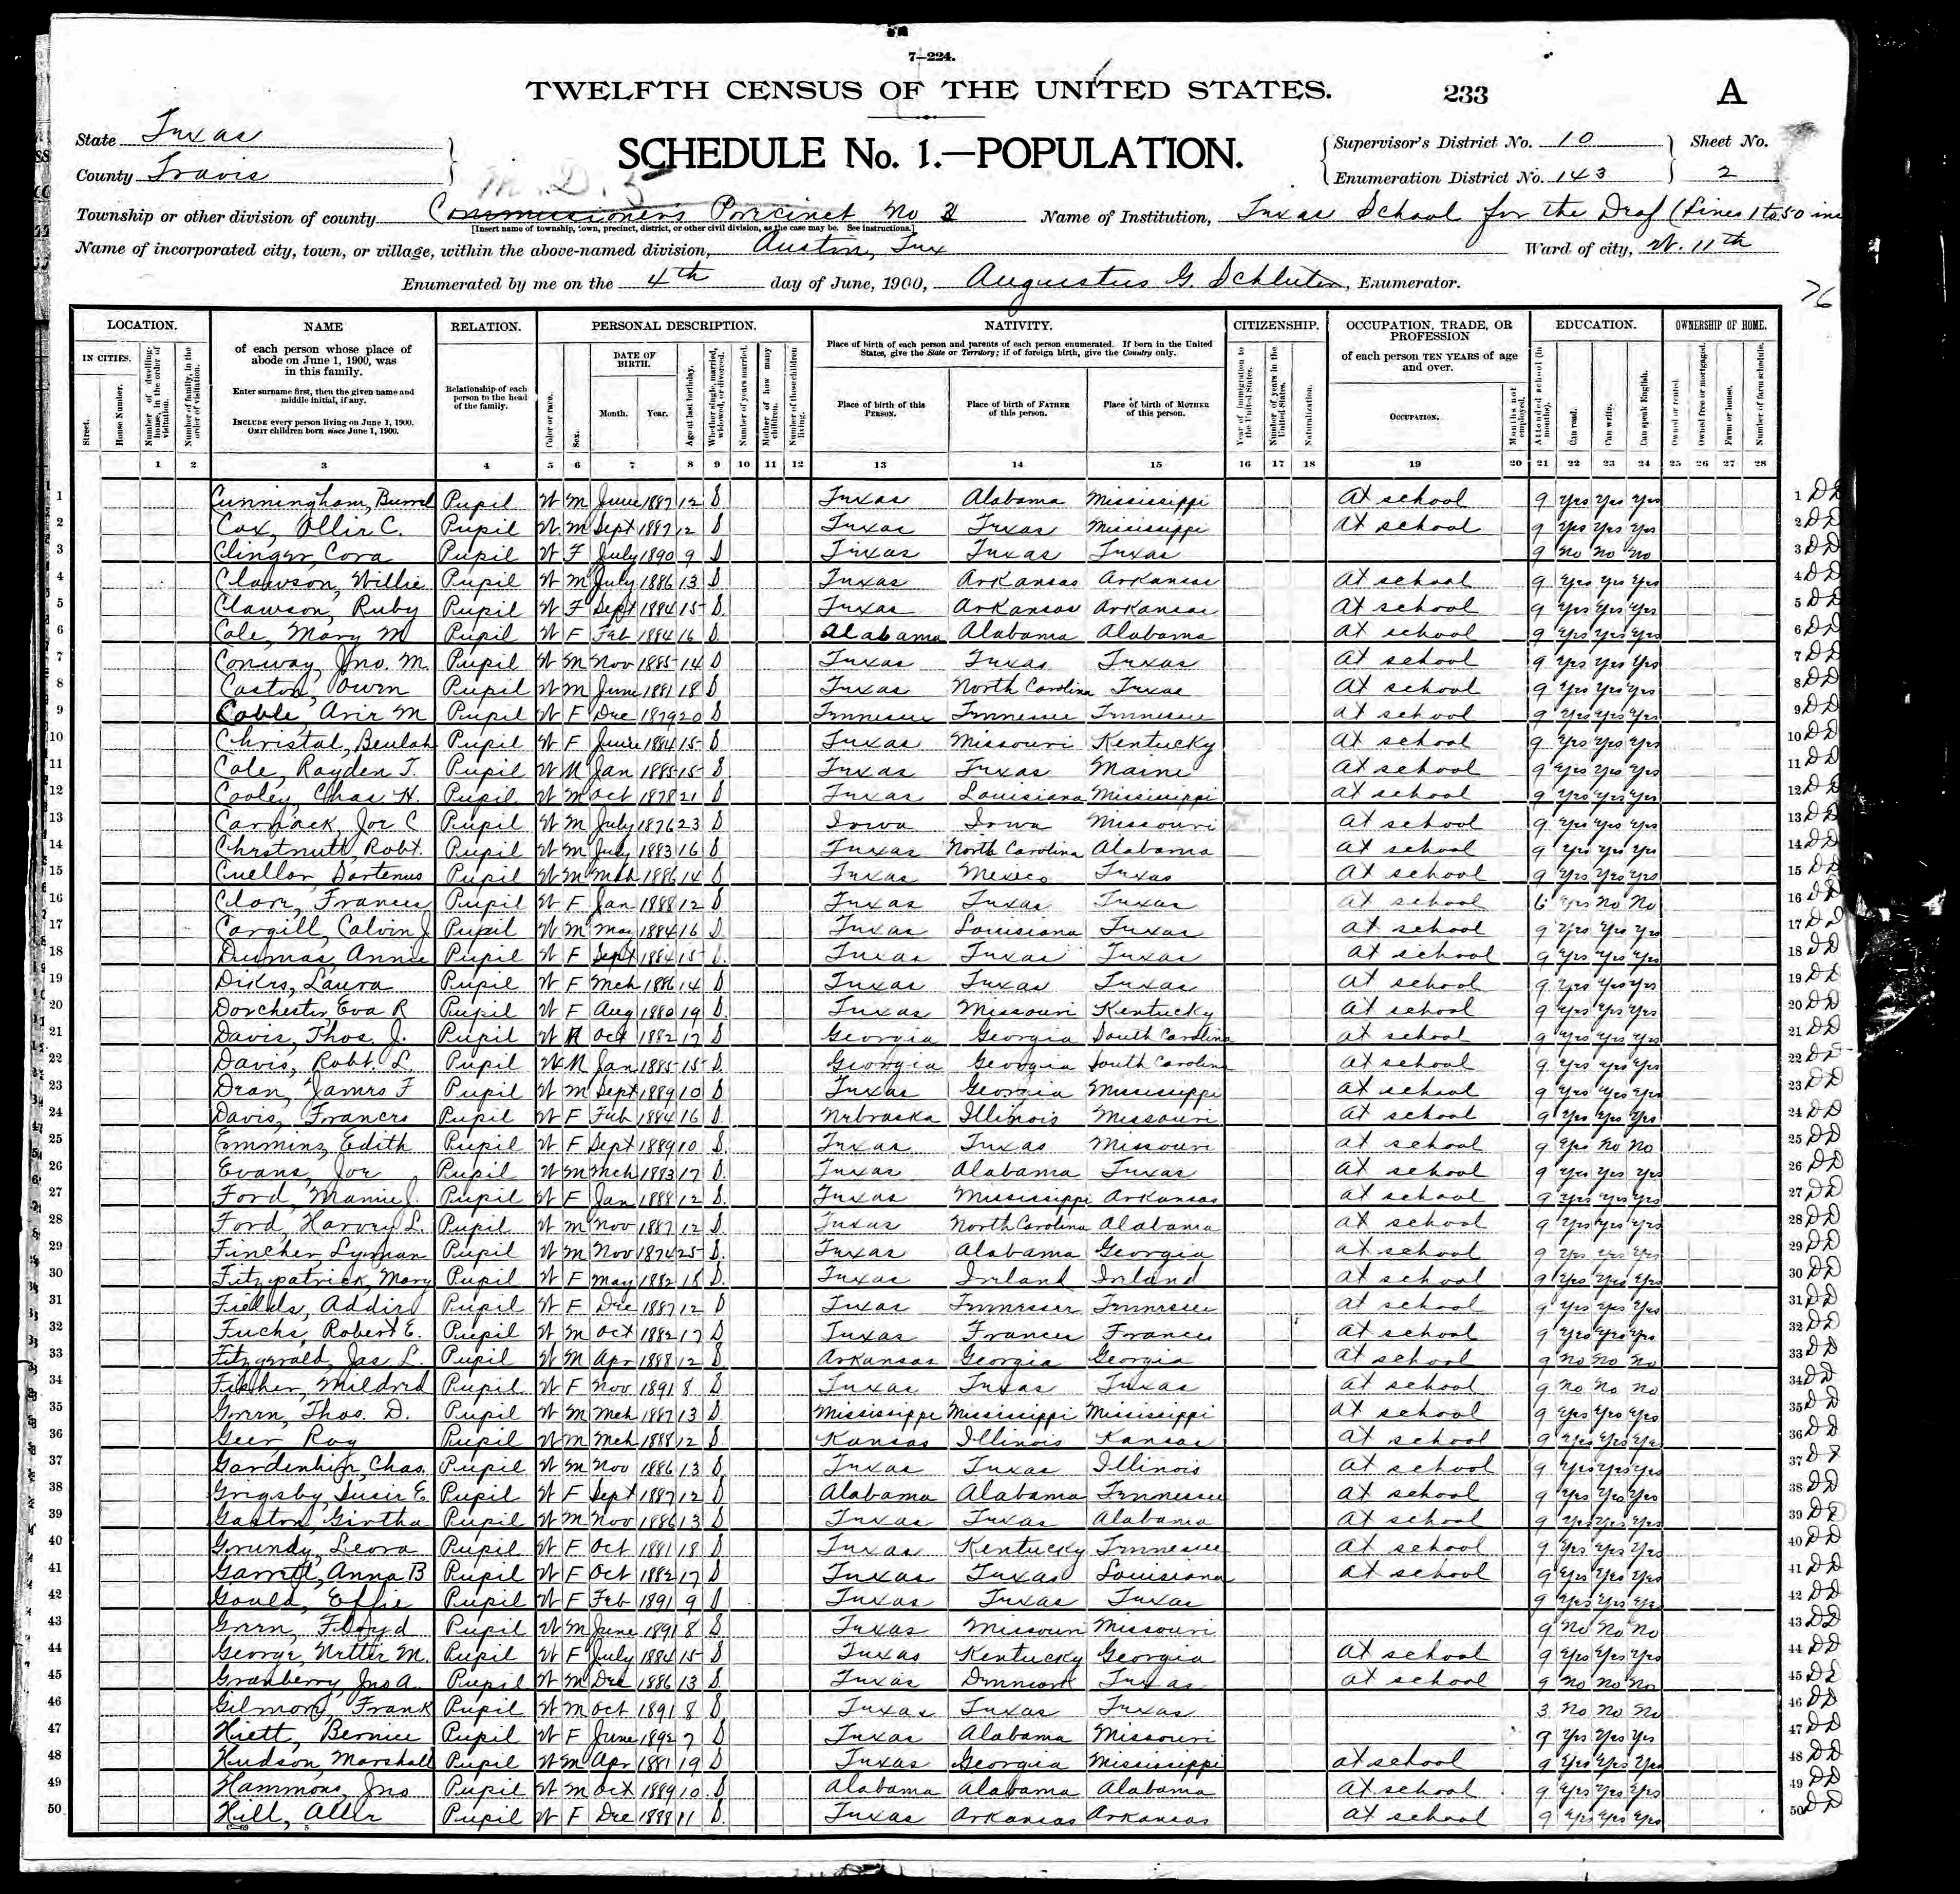 7—224.
TWELFTH CENSUS OF THE UNITED STATES.
233
A
State Texas
County Travis
SCHEDULE No. 1.—POPULATION.
Supervisor's District No. 10
Enumeration District No. 143
Sheet No. 2
M. D. 5
Township or other division of county Commissioner's Precinct No 3 Name of Institution, Texas School for the Deaf (Lines 1 to 50 inc
[Insert name of township, town, precinct, district, or other civil division, as the case may be. See instructions.]
Name of incorporated city, town, or village, within the above-named division, Austin, Tex Ward of city, W. 11th
Enumerated by me on the 4th day of June, 1900, Augustus G. Schluter, Enumerator.
76
LOCATION. NAME RELATION. PERSONAL DESCRIPTION. NATIVITY. CITIZENSHIP. OCCUPATION, TRADE, OR PROFESSION EDUCATION. OWNERSHIP OF HOME.
IN CITIES. Street. House Number. Number of dwelling-house, in the order of visitation. Number of family, in the order of visitation.
of each person whose place of abode on June 1, 1900, was in this family.
Enter surname first, then the given name and middle initial, if any.
INCLUDE every person living on June 1, 1900. OMIT children born since June 1, 1900.
Relationship of each person to the head of the family.
Color or race. Sex. DATE OF BIRTH. Month. Year. Age at last birthday. Whether single, married, widowed, or divorced. Number of years married. Mother of how many children. Number of these children living.
Place of birth of each person and parents of each person enumerated. If born in the United States, give the State or Territory; if of foreign birth, give the Country only.
Place of birth of this PERSON. Place of birth of FATHER of this person. Place of birth of MOTHER of this person.
Year of immigration to the United States. Number of years in the United States. Naturalization.
of each person TEN YEARS of age and over.
OCCUPATION. Months not employed.
Attended school (in months). Can read. Can write. Can speak English.
Owned or rented. Owned free or mortgaged. Farm or house. Number of farm schedule.
1 2 3 4 5 6 7 8 9 10 11 12 13 14 15 16 17 18 19 20 21 22 23 24 25 26 27 28
1 Cunningham, Burrel Pupil W M June 1887 12 S Texas Alabama Mississippi At school 9 Yes Yes Yes 1 DD
2 Cox, Ollie C. Pupil W M Sept 1887 12 S Texas Texas Mississippi At school 9 Yes Yes Yes 2 DD
3 Clinger, Cora Pupil W F July 1890 9 S Texas Texas Texas 9 No No No 3 DD
4 Clawson, Willie Pupil W M July 1886 13 S Texas Arkansas Arkansas At school 9 Yes Yes Yes 4 DD
5 Clawson, Ruby Pupil W F Sept 1884 15 S Texas Arkansas Arkansas At school 9 Yes Yes Yes 5 DD
6 Cole, Mary M Pupil W F Feb 1884 16 S Alabama Alabama Alabama At school 9 Yes Yes Yes 6 DD
7 Conway, Jno. M. Pupil W M Nov 1885 14 S Texas Texas Texas At school 9 Yes Yes Yes 7 DD
8 Caston, Owen Pupil W M June 1881 18 S Texas North Carolina Texas At school 9 Yes Yes Yes 8 DD
9 Coble, Avie M Pupil W F Dec 1879 20 S Tennessee Tennessee Tennessee At school 9 Yes Yes Yes 9 DD
10 Christal, Beulah Pupil W F June 1884 15 S Texas Missouri Kentucky At school 9 Yes Yes Yes 10 DD
11 Cole, Rayden T. Pupil W M Jan 1885 15 S Texas Texas Maine At school 9 Yes Yes Yes 11 DD
12 Cooley, Chas H. Pupil W M Oct 1878 21 S Texas Louisiana Mississippi At school 9 Yes Yes Yes 12 DD
13 Carmack, Joe C Pupil W M July 1876 23 S Iowa Iowa Missouri At school 9 Yes Yes Yes 13 DD
14 Chestnutt, Robt. Pupil W M July 1883 16 S Texas North Carolina Alabama At school 9 Yes Yes Yes 14 DD
15 Cuellar, Pupil W M Mch 1886 14 S Texas Mexico Texas At school 9 Yes Yes Yes 15 DD
16 Clore, Frances Pupil W F Jan 1888 12 S Texas Texas Texas At school 6 Yes No No 16 DD
17 Cargill, Calvin J Pupil W M May 1884 16 S Texas Louisiana Texas At school 9 Yes Yes Yes 17 DD
18 Dumas, Annie Pupil W F Sept 1884 15 S. Texas Texas Texas At school 9 Yes Yes Yes 18 DD
19 Dikes, Laura Pupil W F Mch 1886 14 S Texas Texas Texas At school 9 Yes Yes Yes 19 DD
20 Dorchester, Eva R Pupil W F Aug 1880 19 S. Texas Missouri Kentucky At school 9 Yes Yes Yes 20 DD
21 Davis, Thos. J. Pupil W M Oct 1882 17 S Georgia Georgia South Carolina At school 9 Yes Yes Yes 21 DD
22 Davis, Robt. L. Pupil W M Jan 1885 15 S. Georgia Georgia South Carolina At school 9 Yes Yes Yes 22 DD
23 Dean, James F Pupil W M Sept 1889 10 S Texas Georgia Mississippi At school 9 Yes Yes Yes 23 DD
24 Davis, Frances Pupil W F Feb 1884 16 S. Nebraska Illinois Missouri At school 9 Yes Yes Yes 24 DD
25 Emmins, Edith Pupil W F Sept 1889 10 S Texas Texas Missouri At school 9 Yes No No 25 DD
26 Evans, Joe Pupil W M Mch 1883 17 S. Texas Alabama Texas At school 9 Yes Yes Yes 26 DD
27 Ford, Mamie J. Pupil W F Jan 1888 12 S. Texas Mississippi Arkansas At school 9 Yes Yes Yes 27 DD
28 Ford, Harvey L. Pupil W M Nov 1887 12 S. Texas North Carolina Alabama At school 9 Yes Yes Yes 28 DD
29 Fincher, Lyman Pupil W M Nov 1874 25 S. Texas Alabama Georgia At school 9 Yes Yes Yes 29 DD
30 Fitzpatrick, Mary Pupil W F May 1882 18 S. Texas Ireland Ireland At school 9 Yes Yes Yes 30 DD
31 Fields, Addie Pupil W F Dec 1887 12 S Texas Tennessee Tennessee At school 9 Yes Yes Yes 31 DD
32 Fuchs, Robert E. Pupil W M Oct 1882 17 S Texas France France At school 9 Yes Yes Yes 32 DD
33 Fitzgerald, Jas L. Pupil W M Apr 1888 12 S. Arkansas Georgia Georgia At school 9 No No No 33 DD
34 Fisher, Mildred Pupil W F Nov 1891 8 S Texas Texas Texas At school 9 No No No 34 DD
35 Green, Thos. D. Pupil W M Mch 1887 13 S Mississippi Mississippi Mississippi At school 9 Yes Yes Yes 35 DD
36 Geer, Roy Pupil W M Mch 1888 12 S. Kansas Illinois Kansas At school 9 Yes Yes Yes 36 DD
37 Gardenhire, Chas. Pupil W M Nov 1886 13 S Texas Texas Illinois At school 9 Yes Yes Yes 37 DD
38 Grigsby, Susie E. Pupil W F Sept 1887 12 S Alabama Alabama Tennessee At school 9 Yes Yes Yes 38 DD
39 Gaston, Girtha Pupil W M Nov 1886 13 S Texas Texas Alabama At school 9 Yes Yes Yes 39 DD
40 Grundy, Leora Pupil W F Oct 1881 18 S Texas Kentucky Tennessee At school 9 Yes Yes Yes 40 DD
41 Garrett, Anna B Pupil W F Oct 1882 17 S Texas Texas Louisiana At school 9 Yes Yes Yes 41 DD
42 Gould, Effie Pupil W F Feb 1891 9 S Texas Texas Texas 9 Yes Yes Yes 42 DD
43 Green, Floyd Pupil W M June 1891 8 S Texas Missouri Missouri 9 No No No 43 DD
44 George, Nettie M. Pupil W F July 1884 15 S Texas Kentucky Georgia At school 9 Yes Yes Yes 44 DD
45 Granberry, Jno A. Pupil W M Dec 1886 13 S. Texas Denmark Texas At school 9 No No No 45 DD
46 Gilmore, Frank Pupil W M Oct 1891 8 S. Texas Texas Texas 3 No No No 46 DD
47 Hiett, Bernice Pupil W F June 1892 7 S Texas Alabama Missouri 9 Yes Yes Yes 47 DD
48 Hudson, Marshall Pupil W M Apr 1881 19 S. Texas Georgia Mississippi At school 9 Yes Yes Yes 48 DD
49 Hammons, Jno Pupil W M Oct 1889 10 S Alabama Alabama Alabama At school 9 Yes Yes Yes 49 DD
50 Hill, Aller Pupil W F Dec 1888 11 S. Texas Arkansas Arkansas At school 9 Yes Yes Yes 50 DD